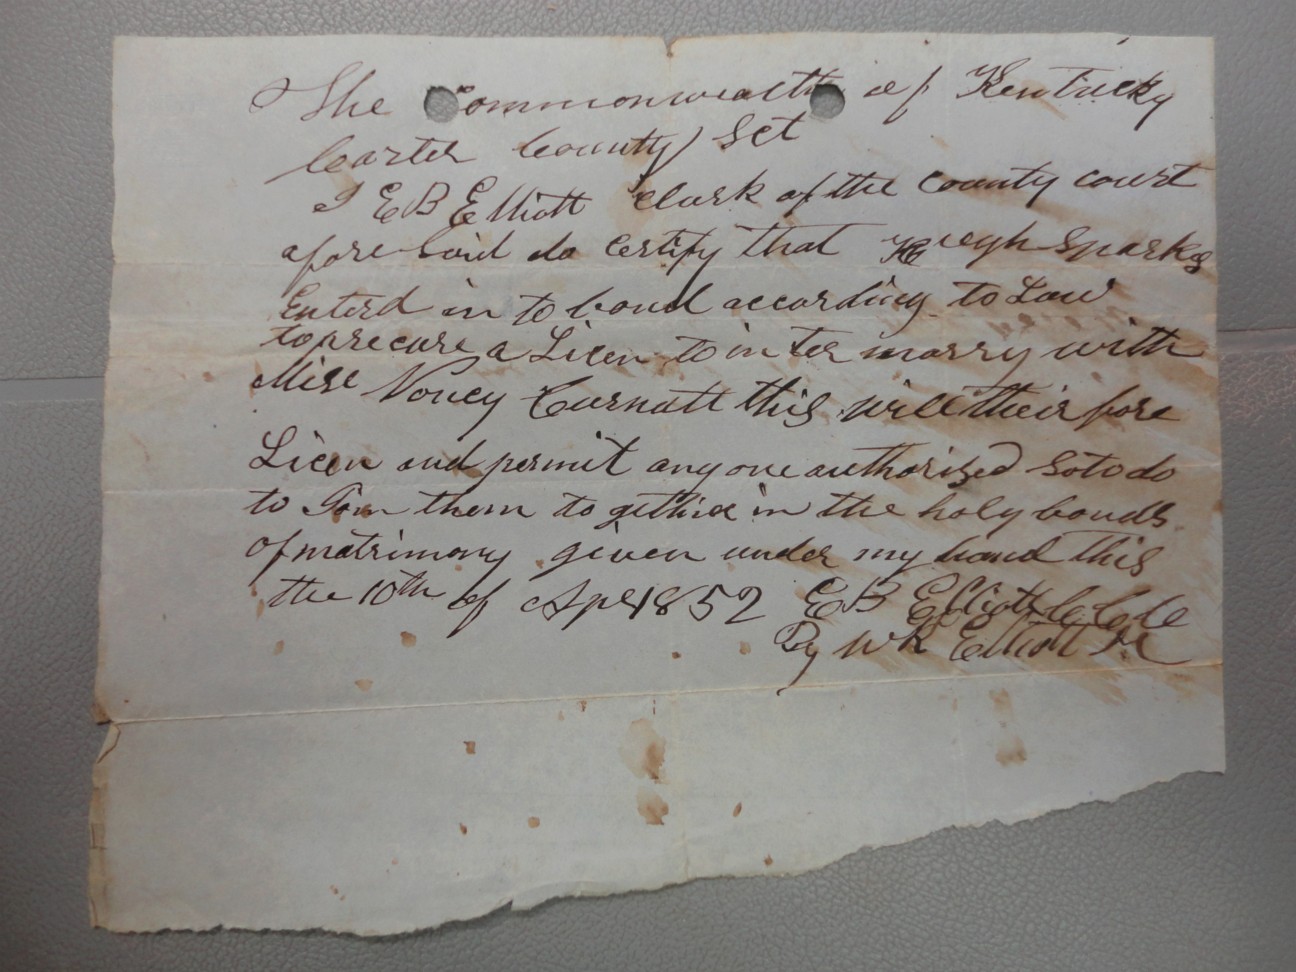 The Commonwealth of Kentucky
Carter County Sct
I E B Elliott Clerk of the county court
afore Said do certify that Hugh Sparks
Enterd in to bond according to Law
to precure a Licen to inter marry with
Miss Nancy Curnatt this will their fore
Licen and permit any one authorised So to do
to Join them to gether in the holy bonds
of matrimony given under my hand this
the 10th of Apl 1852 E B Elliott
By W R Elliott